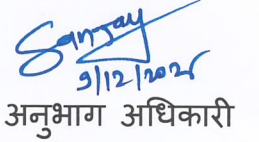 Sanjay
9/12/2025
अनुभाग अधिकारी